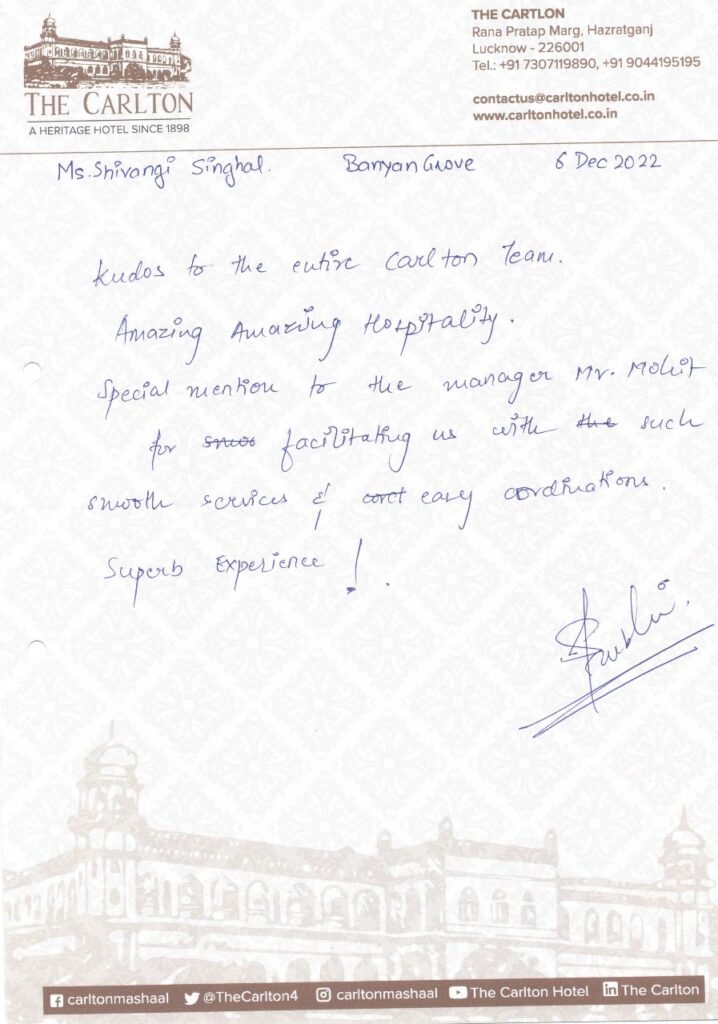 THE CARLTON
A HERITAGE HOTEL SINCE 1898
THE CARTLON
Rana Pratap Marg, Hazratganj
Lucknow - 226001
Tel.: +91 7307119890, +91 9044195195
contactus@carltonhotel.co.in
www.carltonhotel.co.in
Ms. Shivangi Singhal. Banyan Grove 6 Dec 2022
Kudos to the entire Carlton Team.
Amazing Amazing Hospitality.
Special mention to the manager Mr. Mohit
for facilitating us with the such
smooth services & easy coordinations.
Superb Experience !.
carltonmashaal @TheCarlton4 carltonmashaal The Carlton Hotel The Carlton